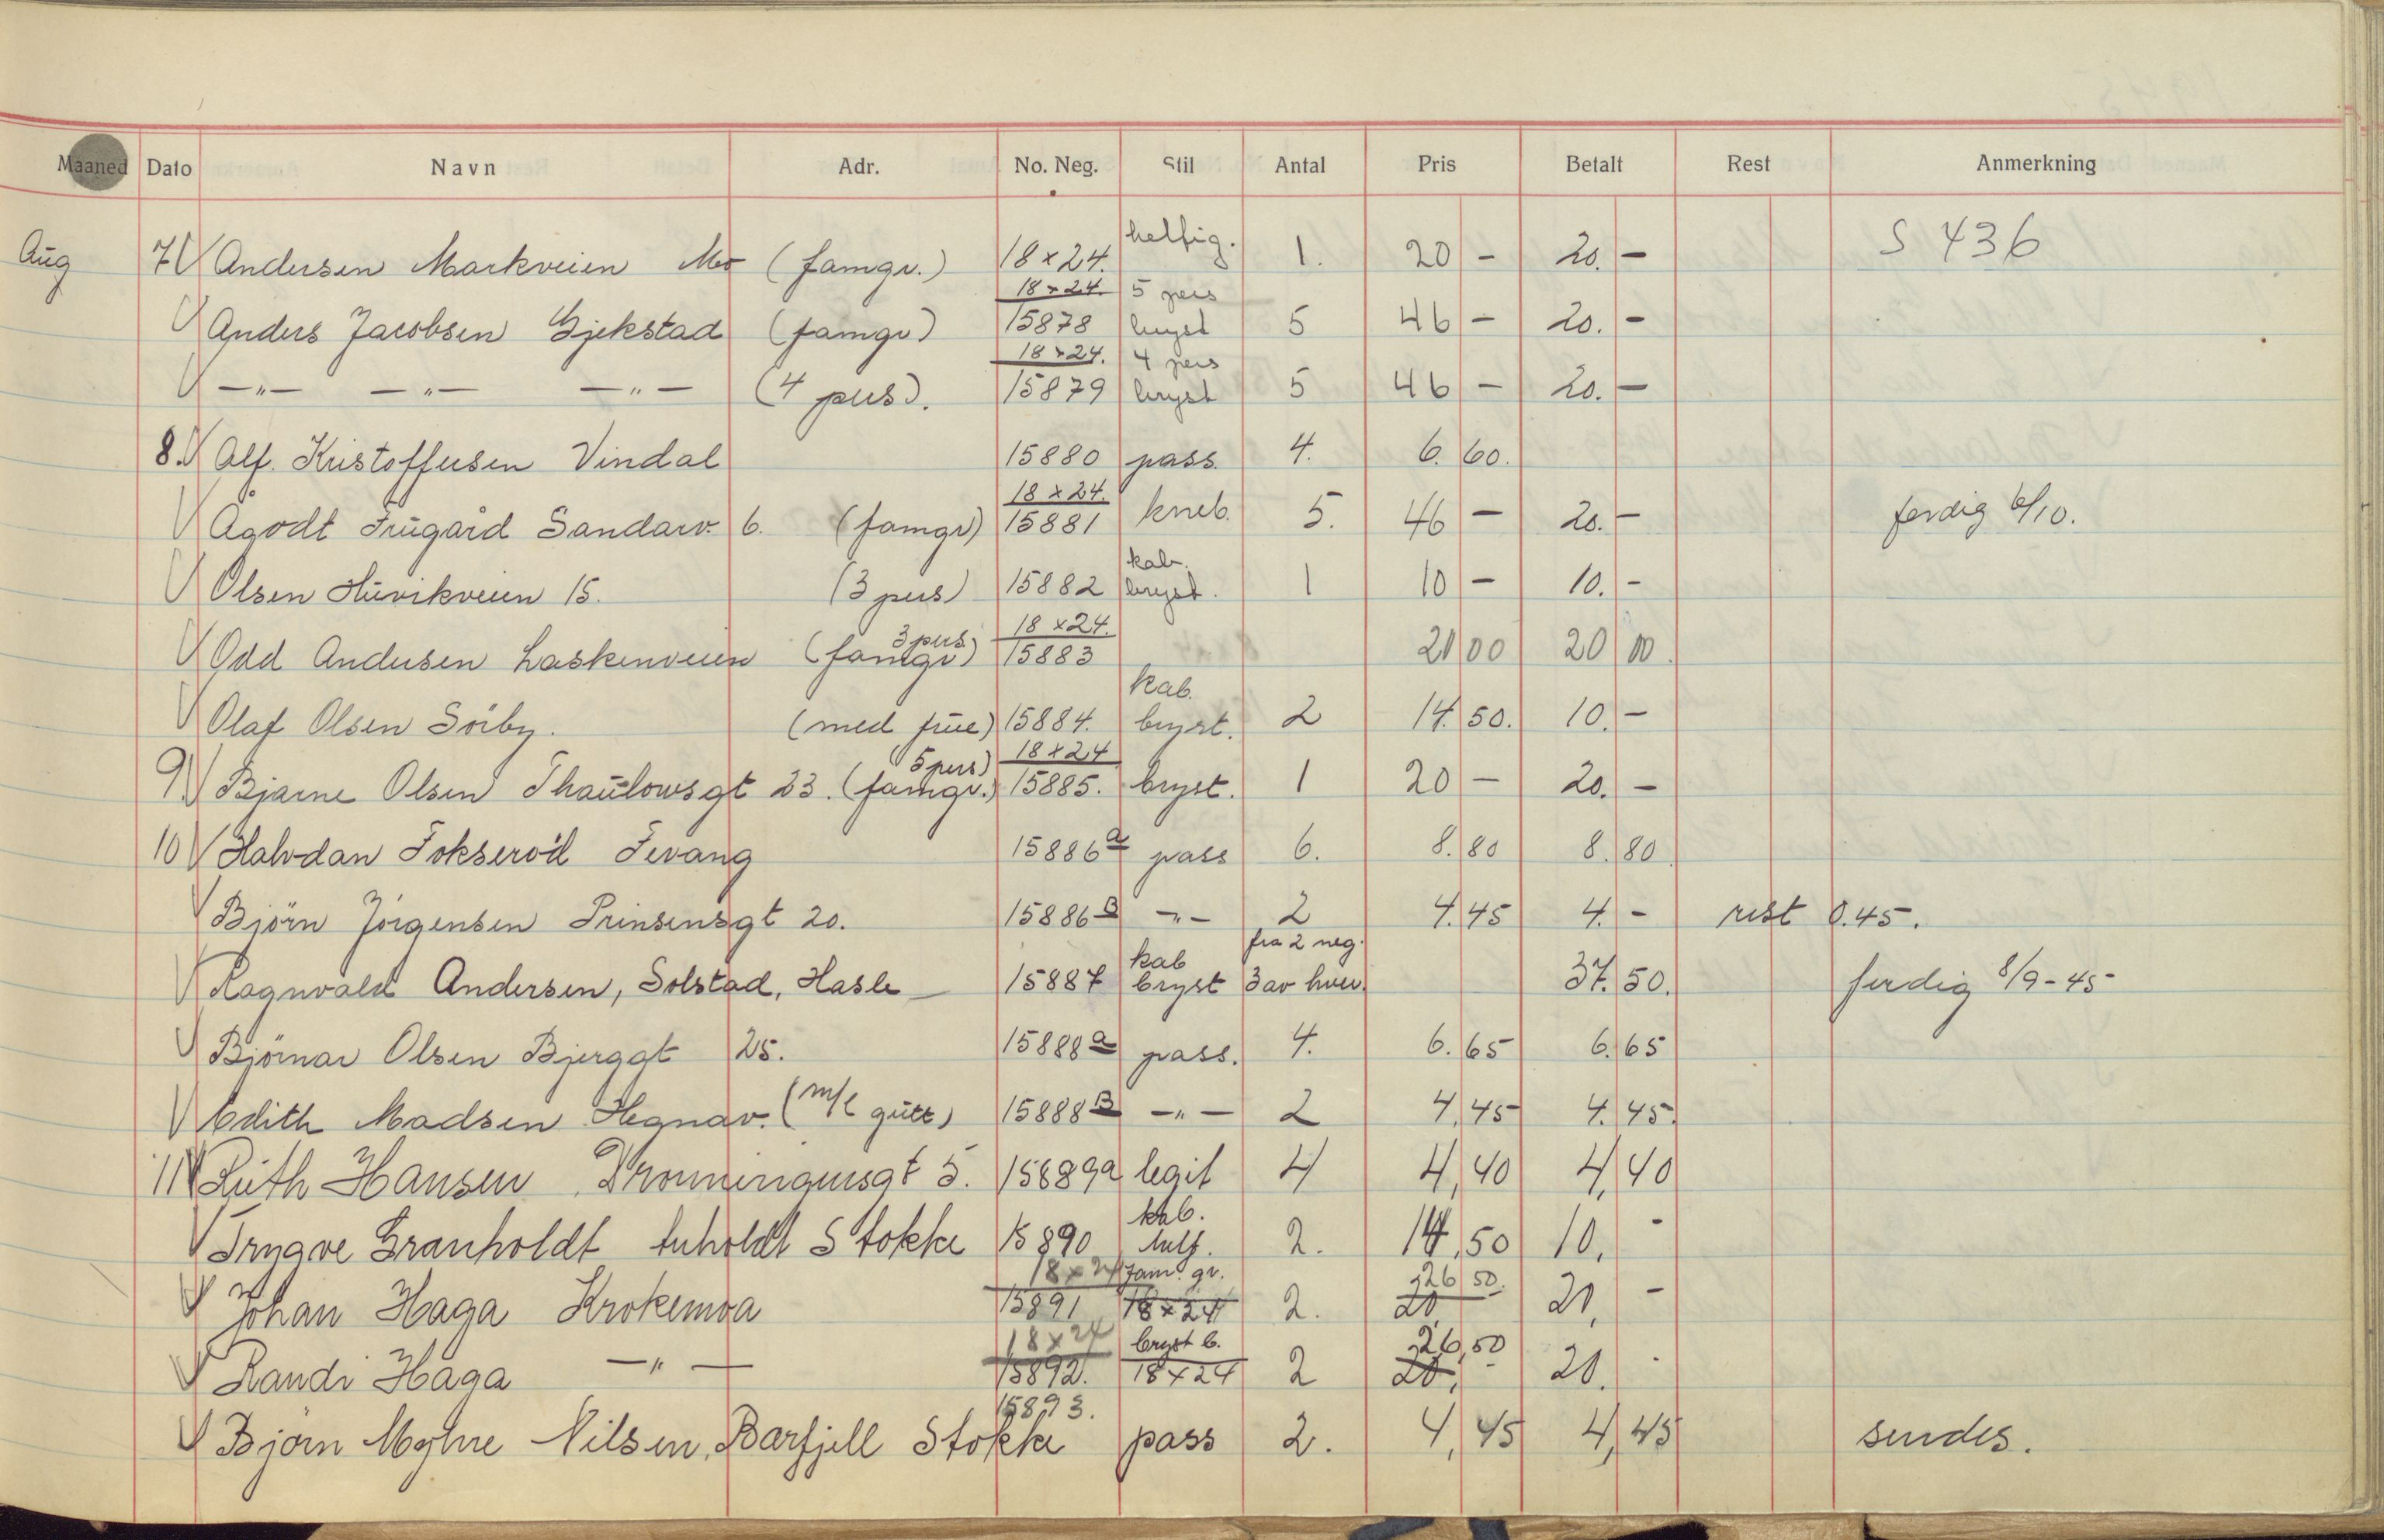 Maaned Dato Navn Adr. No. Neg. Stil Antal Pris Betalt Rest Anmerkning
Aug 7 Andersen Markveien Mo (famgr.) 18x24. helfig. 1. 20 – 20. – S 436
Anders Jacobsen Gjekstad (famgr) 18x24. 15878 5 pers bryst 5 46 – 20. –
–"– –"– –"– (4 pers). 18x24. 15879 4 pers bryst 5 46 – 20. –
8. Alf. Kristoffersen Vindal 15880 pass. 4. 6. 60.
Ågodt Frugård Sandarv. 6. (famgr) 18x24. 15881 kneb. 5. 46 – 20. – ferdig 6/10.
Olsen Huvikveien 15. (3 pers) 15882 kab. bryst. 1 10 – 10. –
Odd Andersen Laskenveien (famgr) 3 pers. 18x24. 15883 20 00 20 00.
Olaf Olsen Sörby. (med frue) 15884. kab. bryst. 2 14. 50. 10. –
9. Bjarne Olsen Thaulowsgt 23. (famgr.) 5 pers) 18x24 15885. bryst. 1 20 – 20. –
10 Halvdan Fokseröd Fevang 15886 a pass 6. 8. 80 8. 80.
Björn Jörgensen Prinsensgt 20. 15886 B –"– 2 4. 45 4. – rest 0.45.
Ragnvald Andersen, Solstad, Hasle 15887 kab bryst fra 2 neg. 3 av hver. 37. 50. ferdig 8/9-45
Björnar Olsen Bjerggt 25. 15888 a pass. 4. 6. 65 6. 65
Edith Madsen Hegnav. (m/l gutt) 15888 B –"– 2 4. 45 4. 45.
11 Ruth Hansen Dronningensgt 5. 15889a legit 4 4, 40 4, 40
Trygve Granholdt Stokke 15890 kab. 2. 14, 50 10, -
Johan Haga Krokemoa 18x24 15891 fam. gr. 18x24 2. 26 50. 20 20, -
Randi Haga –"– 18x24 15892. bryst b. 18x24 2 26,50 20, - 20.
Björn Myhre Nilsen, Barfjell Stokke 15893. pass 2. 4, 45 4, 45 sendes.